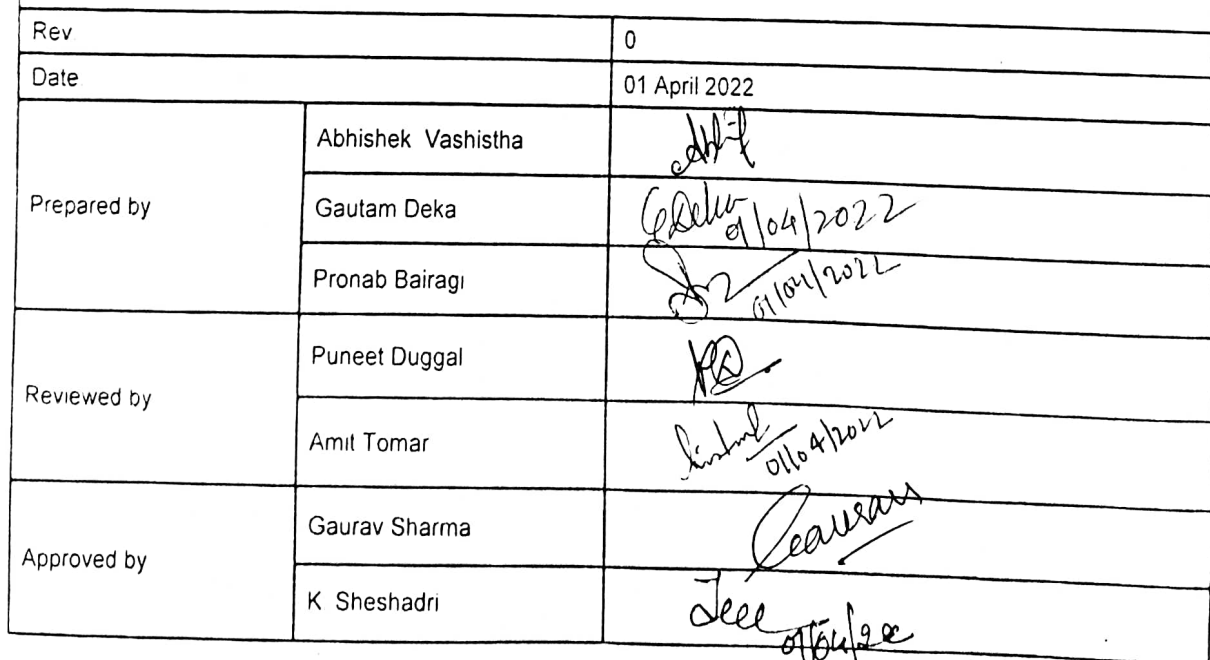 Rev 0
Date 01 April 2022
Prepared by
Abhishek Vashistha
Gautam Deka GDeka 01/04/2022
Pronab Bairagi 01/04/2022
Reviewed by
Puneet Duggal PD
Amit Tomar 01/04/2022
Approved by
Gaurav Sharma Gaurav
K Sheshadri